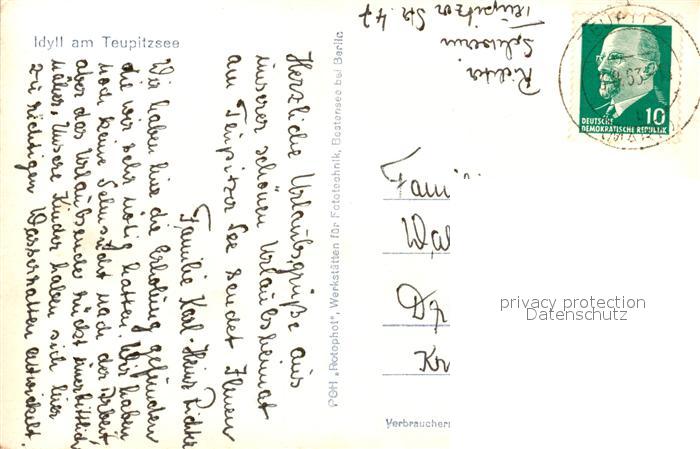 Idyll am Teupitzsee
Herzliche Urlaubsgrüße aus
unserer schönen Urlaubsheimat
am Teupitzer See sendet Ihnen
Familie Karl-Heinz Richter
Wir haben hier die Erholung gefunden
die wir sehr nötig hatten. Wir haben
noch keine Sehnsucht nach der Arbeit,
aber das Urlaubsende rückt unerbittlich
näher. Unsere Kinder haben sich hier
zu richtigen Wasserratten entwickelt.
PGH „Rotophot", Werkstätten für Fototechnik, Bestensee bei Berlin
Richter
Teupitzer Str. 47
TEUPITZ
63
DEUTSCHE
DEMOKRATISCHE REPUBLIK
10
Fami
Wal
Kr
privacy protection
Datenschutz
Verbraucher